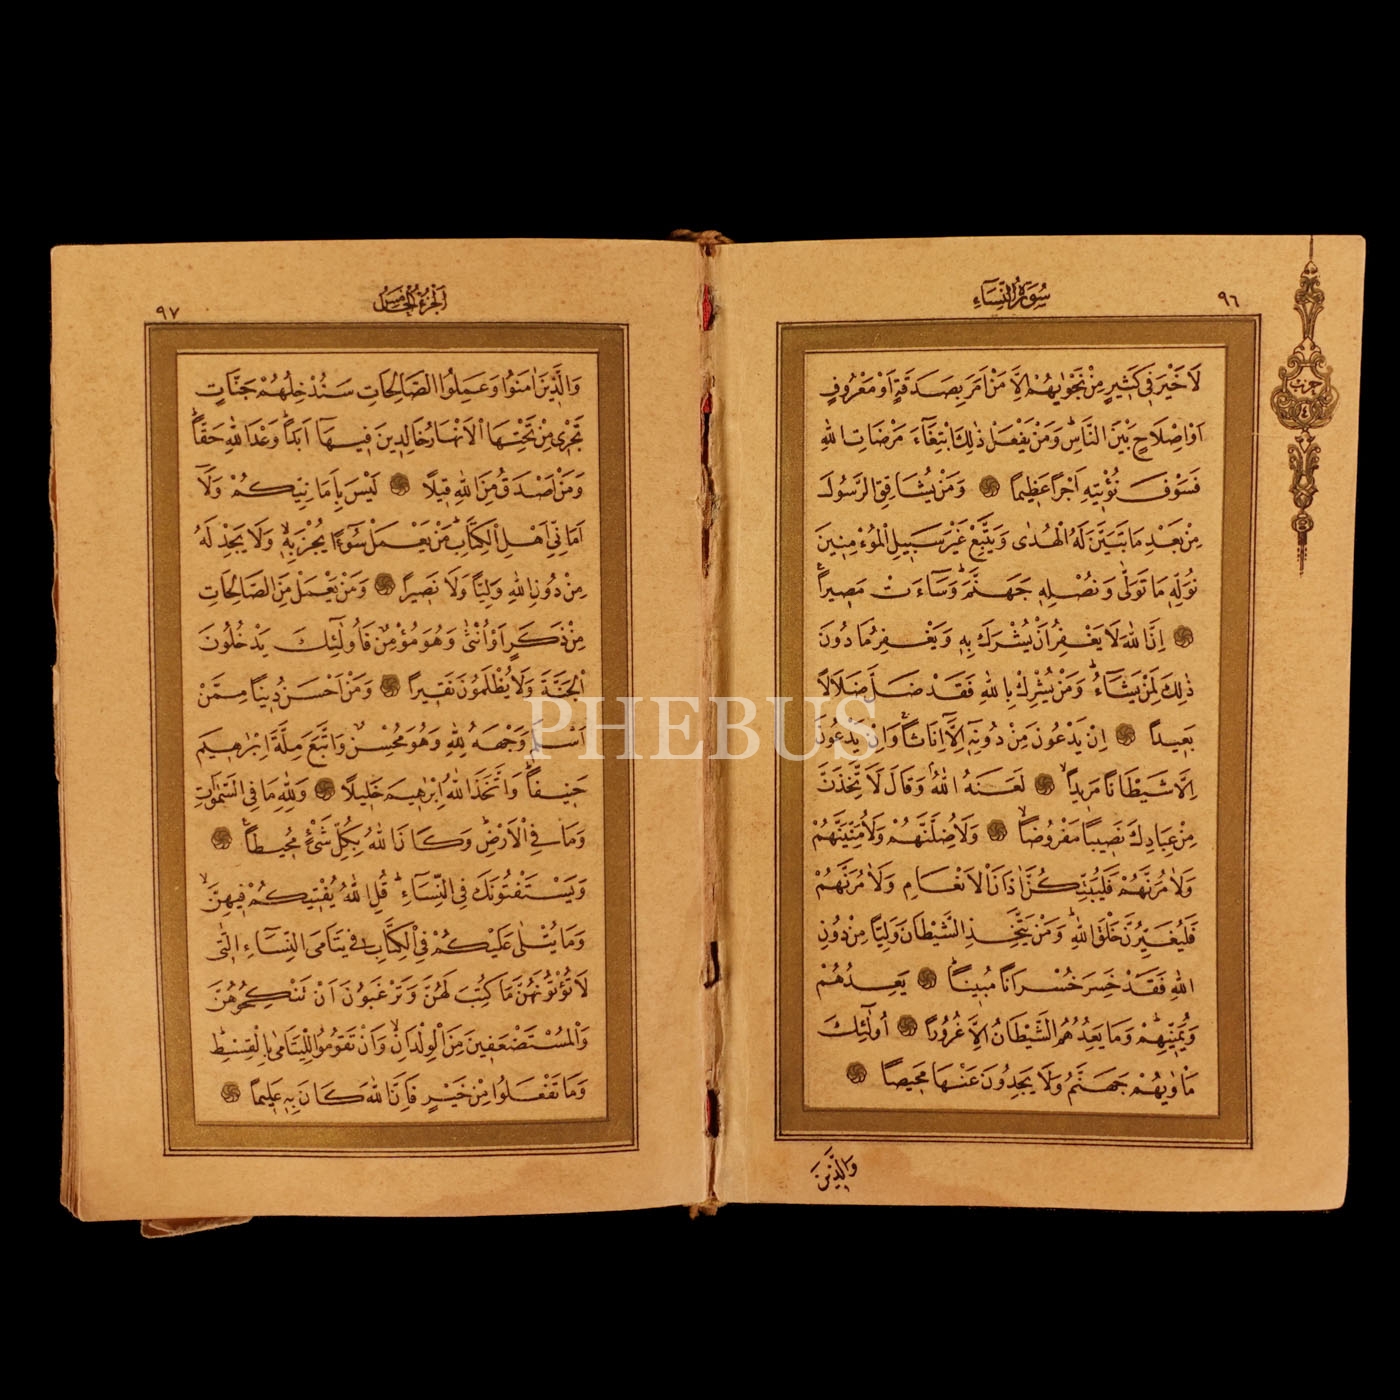 ٩٦
سُورَةُ النِّسَاءِ
حزب
٤
لَا خَيْرَ فِي كَثِيرٍ مِنْ نَجْوٰيهُمْ اِلَّا مَنْ اَمَرَ بِصَدَقَةٍ اَوْ مَعْرُوفٍ
اَوْ اِصْلَاحٍ بَيْنَ النَّاسِۜ وَمَنْ يَفْعَلْ ذٰلِكَ ابْتِغَٓاءَ مَرْضَاتِ اللّٰهِ
فَسَوْفَ نُؤْتِيهِ اَجْرًا عَظِيمًا ۞ وَمَنْ يُشَاقِقِ الرَّسُولَ
مِنْ بَعْدِ مَا تَبَيَّنَ لَهُ الْهُدٰى وَيَتَّبِعْ غَيْرَ سَبِيلِ الْمُؤْمِنِينَ
نُوَلِّهِ مَا تَوَلّٰى وَنُصْلِهِ جَهَنَّمَۜ وَسَٓاءَتْ مَصِيرًا
۞ اِنَّ اللّٰهَ لَا يَغْفِرُ اَنْ يُشْرَكَ بِهِ وَيَغْفِرُ مَا دُونَ
ذٰلِكَ لِمَنْ يَشَٓاءُۜ وَمَنْ يُشْرِكْ بِاللّٰهِ فَقَدْ ضَلَّ ضَلَالًا
بَعِيدًا ۞ اِنْ يَدْعُونَ مِنْ دُونِهِٓ اِلَّٓا اِنَاثًاۚ وَاِنْ يَدْعُونَ
اِلَّا شَيْطَانًا مَرِيدًاۙ ۞ لَعَنَهُ اللّٰهُۢ وَقَالَ لَاَتَّخِذَنَّ
مِنْ عِبَادِكَ نَصِيبًا مَفْرُوضًاۙ ۞ وَلَاُضِلَّنَّهُمْ وَلَاُمَنِّيَنَّهُمْ
وَلَاٰمُرَنَّهُمْ فَلَيُبَتِّكُنَّ اٰذَانَ الْاَنْعَامِ وَلَاٰمُرَنَّهُمْ
فَلَيُغَيِّرُنَّ خَلْقَ اللّٰهِۜ وَمَنْ يَتَّخِذِ الشَّيْطَانَ وَلِيًّا مِنْ دُونِ
اللّٰهِ فَقَدْ خَسِرَ خُسْرَانًا مُبِينًاۜ ۞ يَعِدُهُمْ
وَيُمَنِّيهِمْۜ وَمَا يَعِدُهُمُ الشَّيْطَانُ اِلَّا غُرُورًا ۞ اُولٰٓئِكَ
مَأْوٰيهُمْ جَهَنَّمُ وَلَا يَجِدُونَ عَنْهَا مَحِيصًا ۞
وَالَّذِينَ
اَلْجُزْءُ الْخَامِسُ
٩٧
وَالَّذِينَ اٰمَنُوا وَعَمِلُوا الصَّالِحَاتِ سَنُدْخِلُهُمْ جَنَّاتٍ
تَجْرِي مِنْ تَحْتِهَا الْاَنْهَارُ خَالِدِينَ فِيهَٓا اَبَدًاۜ وَعْدَ اللّٰهِ حَقًّاۜ
وَمَنْ اَصْدَقُ مِنَ اللّٰهِ قِيلًا ۞ لَيْسَ بِاَمَانِيِّكُمْ وَلَٓا
اَمَانِيِّ اَهْلِ الْكِتَابِۜ مَنْ يَعْمَلْ سُٓوءًا يُجْزَ بِهِۙ وَلَا يَجِدْ لَهُ
مِنْ دُونِ اللّٰهِ وَلِيًّا وَلَا نَصِيرًا ۞ وَمَنْ يَعْمَلْ مِنَ الصَّالِحَاتِ
مِنْ ذَكَرٍ اَوْ اُنْثٰى وَهُوَ مُؤْمِنٌ فَاُولٰٓئِكَ يَدْخُلُونَ
الْجَنَّةَ وَلَا يُظْلَمُونَ نَقِيرًا ۞ وَمَنْ اَحْسَنُ دِينًا مِمَّنْ
اَسْلَمَ وَجْهَهُ لِلّٰهِ وَهُوَ مُحْسِنٌ وَاتَّبَعَ مِلَّةَ اِبْرٰهِيمَ
حَنِيفًاۜ وَاتَّخَذَ اللّٰهُ اِبْرٰهِيمَ خَلِيلًا ۞ وَلِلّٰهِ مَا فِي السَّمٰوَاتِ
وَمَا فِي الْاَرْضِۜ وَكَانَ اللّٰهُ بِكُلِّ شَيْءٍ مُحِيطًا۟ ۞
وَيَسْتَفْتُونَكَ فِي النِّسَٓاءِۜ قُلِ اللّٰهُ يُفْتِيكُمْ فِيهِنَّۙ
وَمَا يُتْلٰى عَلَيْكُمْ فِي الْكِتَابِ فِي يَتَامَى النِّسَٓاءِ الّٰتِي
لَا تُؤْتُونَهُنَّ مَا كُتِبَ لَهُنَّ وَتَرْغَبُونَ اَنْ تَنْكِحُوهُنَّ
وَالْمُسْتَضْعَفِينَ مِنَ الْوِلْدَانِۙ وَاَنْ تَقُومُوا لِلْيَتَامٰى بِالْقِسْطِۜ
وَمَا تَفْعَلُوا مِنْ خَيْرٍ فَاِنَّ اللّٰهَ كَانَ بِهِ عَلِيمًا ۞
PHEBUS